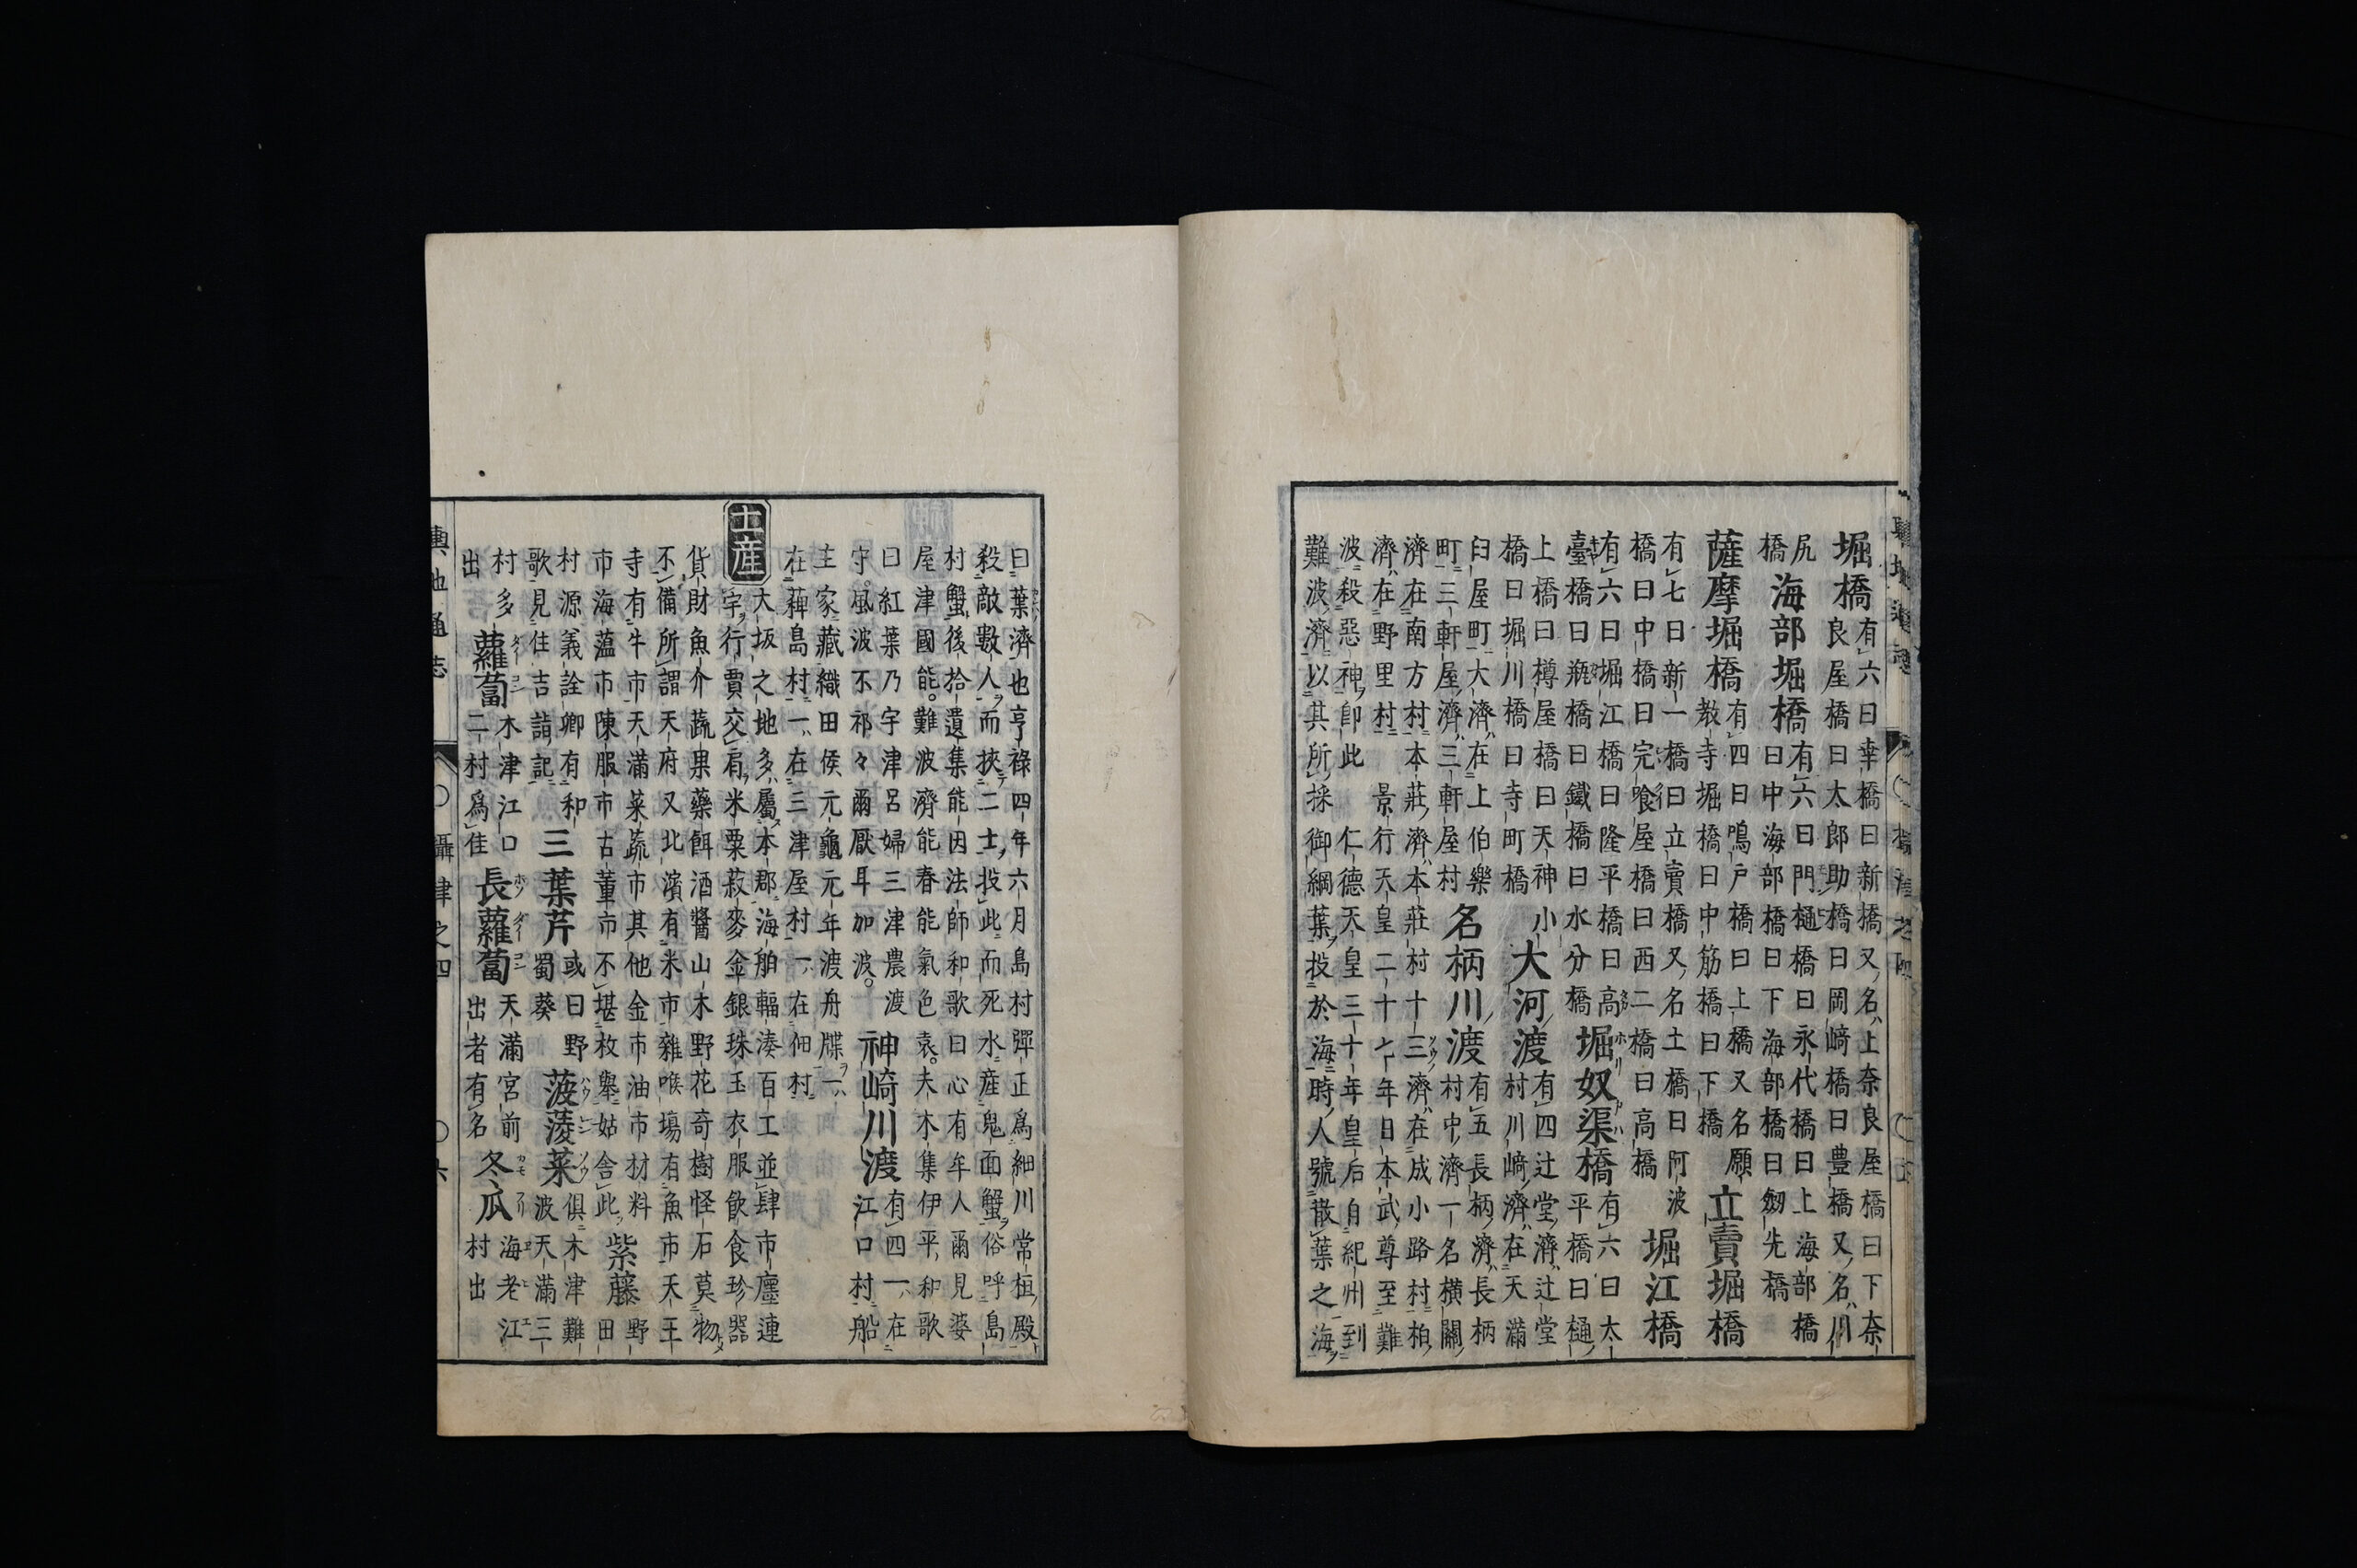 堀橋有六曰幸橋曰新橋又名上奈良屋橋曰下奈
良屋橋曰太郎助橋曰岡﨑橋曰豊橋又名川
尻橋
海部堀橋有六曰門樋橋曰永代橋曰上海部橋
曰中海部橋曰下海部橋曰劔先橋
薩摩堀橋有四曰鳴戸橋曰上橋又名願
教寺堀橋曰中筋橋曰下橋
立賣堀橋
有七曰新一橋曰立賣橋又名土橋曰阿波
橋曰中橋曰完喰屋橋曰西二橋曰高橋
堀江橋
有六曰堀江橋曰隆平橋曰高
臺橋曰瓶橋曰鐵橋曰水分橋
堀奴渠橋有六曰太
平橋曰樋
上橋曰樽屋橋曰天神
橋曰堀川橋曰寺町橋
小大河渡有四辻堂濟辻堂
村川﨑濟在天滿
臼屋町大濟在上伯樂
町三軒屋濟三軒屋村
名柄川渡有五長柄濟長柄
村中濟一名横關
濟在南方村本莊濟本莊村十三濟在成小路村柏
濟在野里村 景行天皇二十七年日本武尊至難
波殺惡神卽此 仁德天皇三十年皇后自紀州到
難波濟以其所採御綱葉投於海時人號散葉之海
曰葉濟也亨祿四年六月島村彈正爲細川常桓殿
殺敵數人而挾二士投此而死水産鬼面蟹俗呼島
村蟹後拾遺集能因法師和歌曰心有牟人爾見婆
屋津國能難波濟能春能氣色袁夫木集伊平和歌
曰紅葉乃宇津呂婦三津農渡
守風波不祁々爾厭耳加波
神﨑川渡有四一在
江口村船
主家藏織田侯元龜元年渡舟牒一
在薭島村一在三津屋村一在佃村
土産
大坂之地多屬本郡海舶輻湊百工並肆市廛連
宇行賈交肩米粟菽麥金銀珠玉衣服飮食珍器
貨財魚介蔬果藥餌酒醬山木野花奇樹怪石莫物
不備所謂天府又北濱有米市雜喉場有魚市天王
寺有牛市天滿菜蔬市其他金市油市材料
市海薀市陳服市古董市不堪枚舉姑舍此
紫藤野
田
村源義詮卿有和
歌見住吉詣記
三葉芹或曰野
蜀葵
菠薐菜俱木津難
波天滿三
村多
出
蘿蔔木津江口
二村爲佳
長蘿蔔天滿宮前
出者有名
冬瓜海老江
村出
輿地通志 ○ 攝津之四 ○六